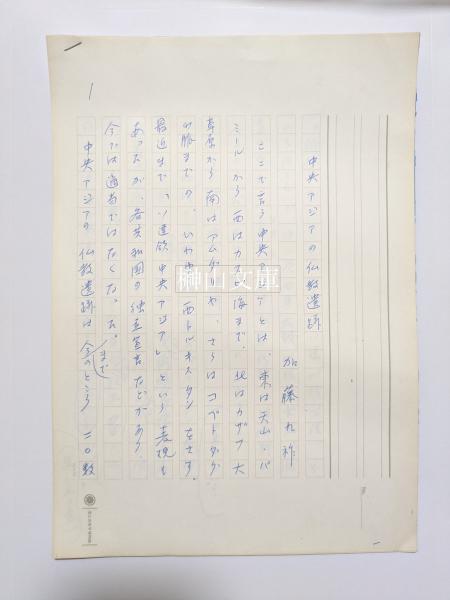 中央アジアの仏教遺跡
加藤九祚
ここで言う中央アジアとは、東は天山・パ
ミールから西はカスピ海まで、北はカザフ大
草原から南はアムダリヤ、さらはコペトダグ
山脈までの、いわゆる西トルキスタンをさす。
最近まで「ソ連領中央アジア」という表現も
あったが、各共和国の独立宣言などがあり、
今では適当ではなくなった。
中央アジアの仏教遺跡は今のところまだ二〇数
1
榊山文庫